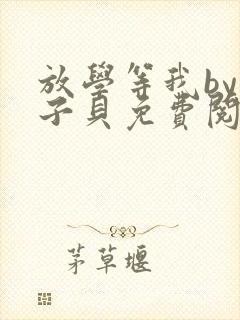 放學等我by
子貝免費閱
茅草堰